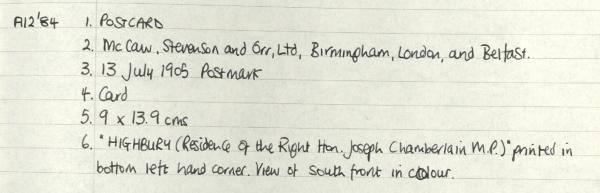 A12'84 1. POSTCARD
2. McCaw, Stevenson and Orr, Ltd, Birmingham, London, and Belfast.
3. 13 July 1905 Postmark
4. Card
5. 9 x 13.9 cms
6. "HIGHBURY (Residence of the Right Hon. Joseph Chamberlain M.P.)" printed in
bottom left hand corner. View of South front in colour.